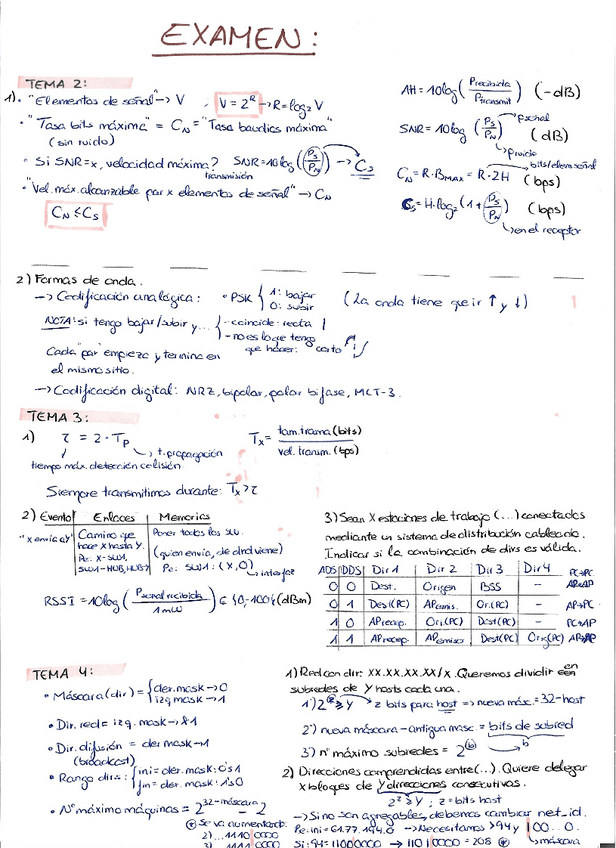 EXAMEN:
TEMA 2:
1). "Elementos de señal" → V , V = 2^R → R = log₂ V
• "Tasa bits máxima" = C_N = "Tasa baudios máxima"
(sin ruido)
• Si SNR=x, velocidad máxima? SNR=10log(Ps/PN) → Cs
transmisión
• "Vel. máx. alcanzable par x elementos de señal" → C_N
C_N ≤ C_S
AH = 10log(Precibida/Ptransmit) (-dB)
SNR = 10log(Ps/PN) (dB)
Pseñal
Pruido
C_N = R·B_MAX = R·2H (bps)
bits/elem señal
Cs = H·log₂(1 + Ps/PN) (bps)
en el receptor
2) Formas de onda.
→ Codificación analógica: • PSK { 1: bajar
0: subir
(La onda tiene que ir ↑ y ↓)
NOTA: si tengo bajar/subir y... { - coincide: recta
- no es lo que tengo
que hacer: corto
Cada "par" empieza y termina en
el mismo sitio.
→ Codificación digital: NRZ, bipolar, polar bifase, MLT-3.
TEMA 3:
1) τ = 2·Tp
t. propagación
tiempo máx. detección colisión
Tx = tam. trama (bits) / vel. transm. (bps)
Siempre transmitimos durante: Tx > τ
2) Evento Enlaces Memorias
"X envía a Y" Camino que
hace X hasta Y.
Pe: X-SW1,
SW1-HUB, HUB-Y
Poner todos los SW.
(quien envía, de dnd viene)
Pe: SW1: (X, 0)
interfaz
RSSI = 10log(Pseñal recibida / 1mW) ∈ {0,-100} (dBm)
3) Sean X estaciones de trabajo (...) conectados
mediante un sistema de distribución cableado.
Indicar si la combinación de dirs es válida.
ADS DDS Dir 1 Dir 2 Dir 3 Dir 4
0 0 Dest. Origen BSS - PC→PC
AP→AP
0 1 Dest(PC) APemis. Or.(PC) - AP→PC
1 0 APrecep. Ori(PC) Dest(PC) - PC→AP
1 1 APrecep. APemiso Dest(PC) Orig(PC) AP→AP
TEMA 4:
• Máscara (dir) = { der. mask → 0
izq mask → 1
• Dir. red = izq. mask → 1
• Dir. difusión = der mask → 1
(broadcast)
• Rango dirs.: { ini = der. mask: 0's 1
fin = der. mask: 1's 0
• Nº máximo máquinas = 2^(32-máscara) - 2
Se va aumentando:
2)... 1110|0000
3)... 1111|0000
1) Red con dir: XX.XX.XX.XX/X. Queremos dividir en
subredes de Y hosts cada una.
1º) 2^z ≥ Y z bits para host ⇒ nueva másc. = 32-host
2º) nueva máscara - antigua masc. = bits de subred
b
3º) nº máximo subredes = 2^(b)
2) Direcciones comprendidas entre (...). Quiere delegar
X bloques de Y direcciones consecutivas.
2^z ≥ Y ; z = bits host
→ Si no son agregables, debemos cambiar net_id.
Pe: ini = 61.77.194.0 → Necesitamos > 194 y 100...0.
Si: 194: 11000000 → 1101|0000 = 208
máscara